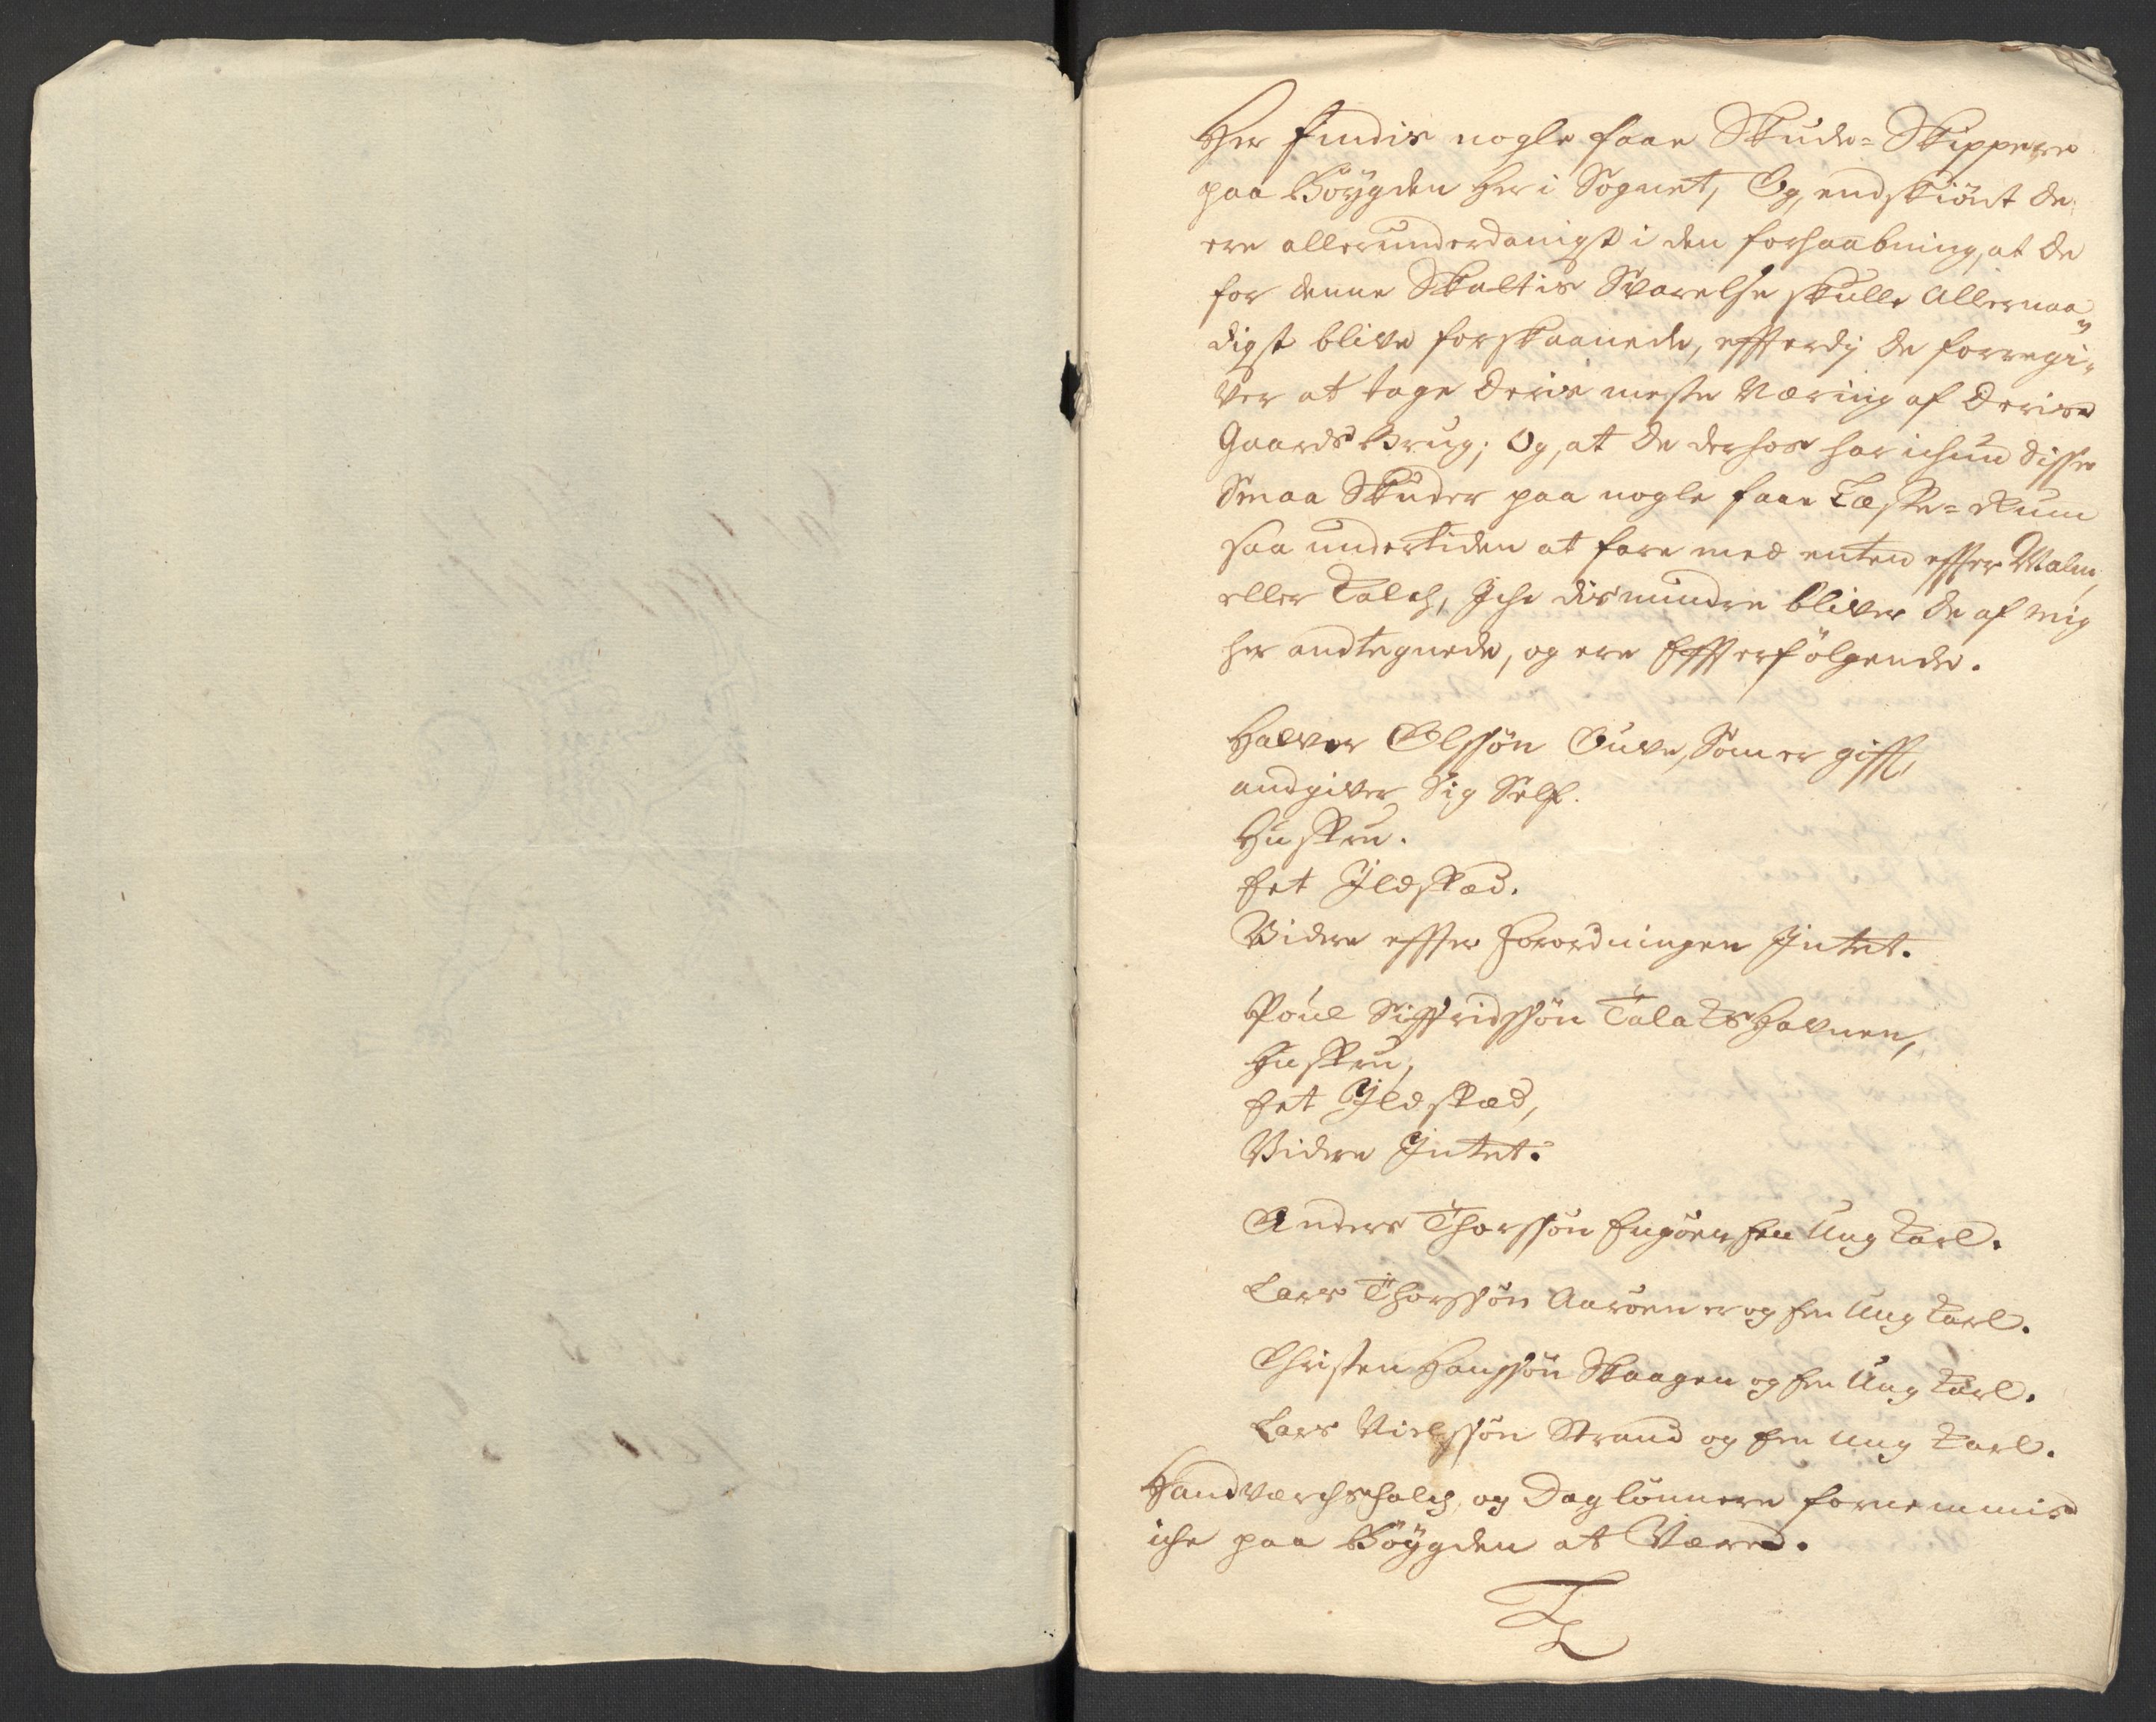 Her findis nogle faae Skude-Skippere
paa Böygden her i Sognet, Og, endskiönt de
ere allerunderdanigst i den forhaabning, at de
for denne Skattis Svarelse skulle Allernaa-
digst blive forskaanede, effterdj de forregi-
ver at tage deris meste Næring af deris
Gaards Brug; Og, at de derhos har ichun disse
Smaa Skuder paa nogle faae Læste-Rum
saa undertiden at fare med enten effter Malm,
eller Kalch, Iche dis mindre bliver de af mig
her andtegnede, og ere Effterfölgende.
Halvor Olssön Ouve, Som er gifft,
andgiver Sig Self.
Hustru.
Eet Ildstæd.
Videre effter Forordningen Intet.
Poul Siffridssön Talaks Havnen,
Hustru,
Eet Ildstæd,
Videre Intet.
Anders Thorssön Engöen Een Ung Karl.
Lars Thorssön Aaröen er og Een Ung Karl.
Christen Hanssön Skaagen og Een Ung Karl.
Lars Nielssön Strand og Een Ung Karl.
Handværchsfolch, og Daglönnere fornemmis
iche paa Böygden at Være.